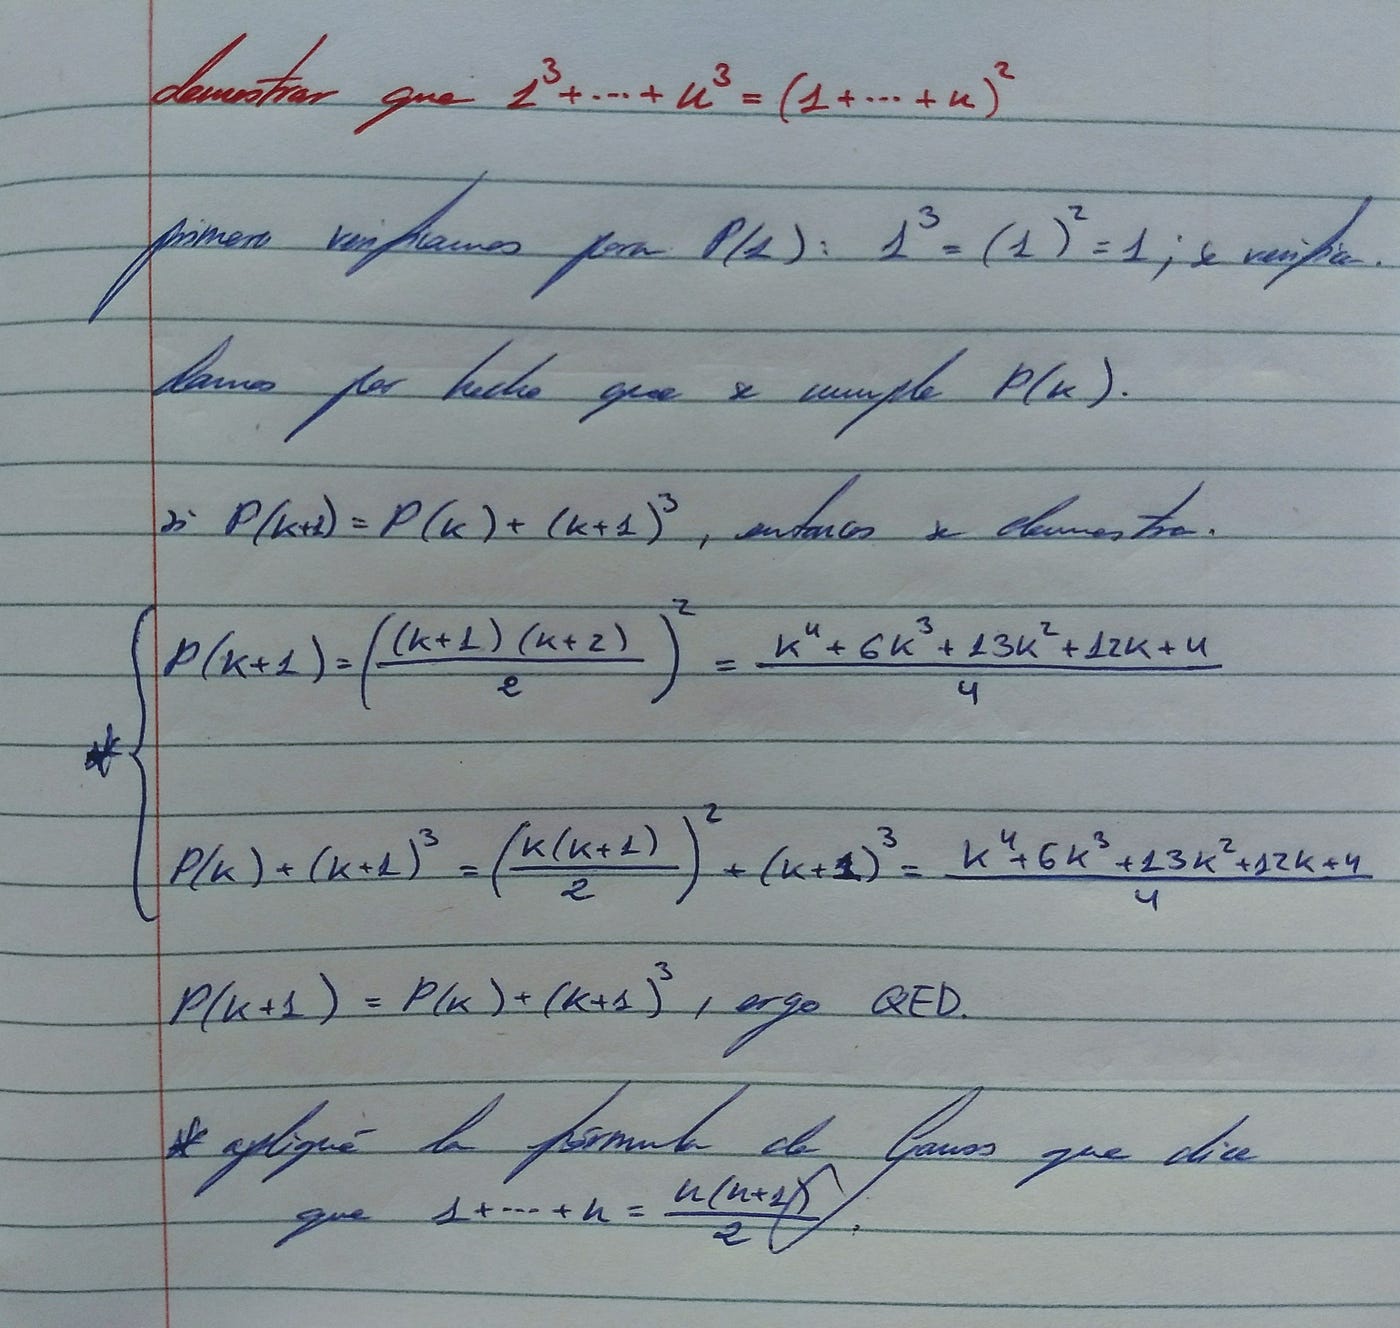 demostrar que 1³+...+n³=(1+...+n)²
primero verificamos para P(1): 1³=(1)²=1; se verifica.
damos por hecho que se cumple P(k).
si P(k+1)=P(k)+(k+1)³, entonces se demuestra.
P(k+1)=((k+1)(k+2)/2)²=(k⁴+6k³+13k²+12k+4)/4
*
P(k)+(k+1)³=(k(k+1)/2)²+(k+1)³=(k⁴+6k³+13k²+12k+4)/4
P(k+1)=P(k)+(k+1)³, ergo QED.
* apliqué la fórmula de Gauss que dice
que 1+...+n=n(n+1)/2.